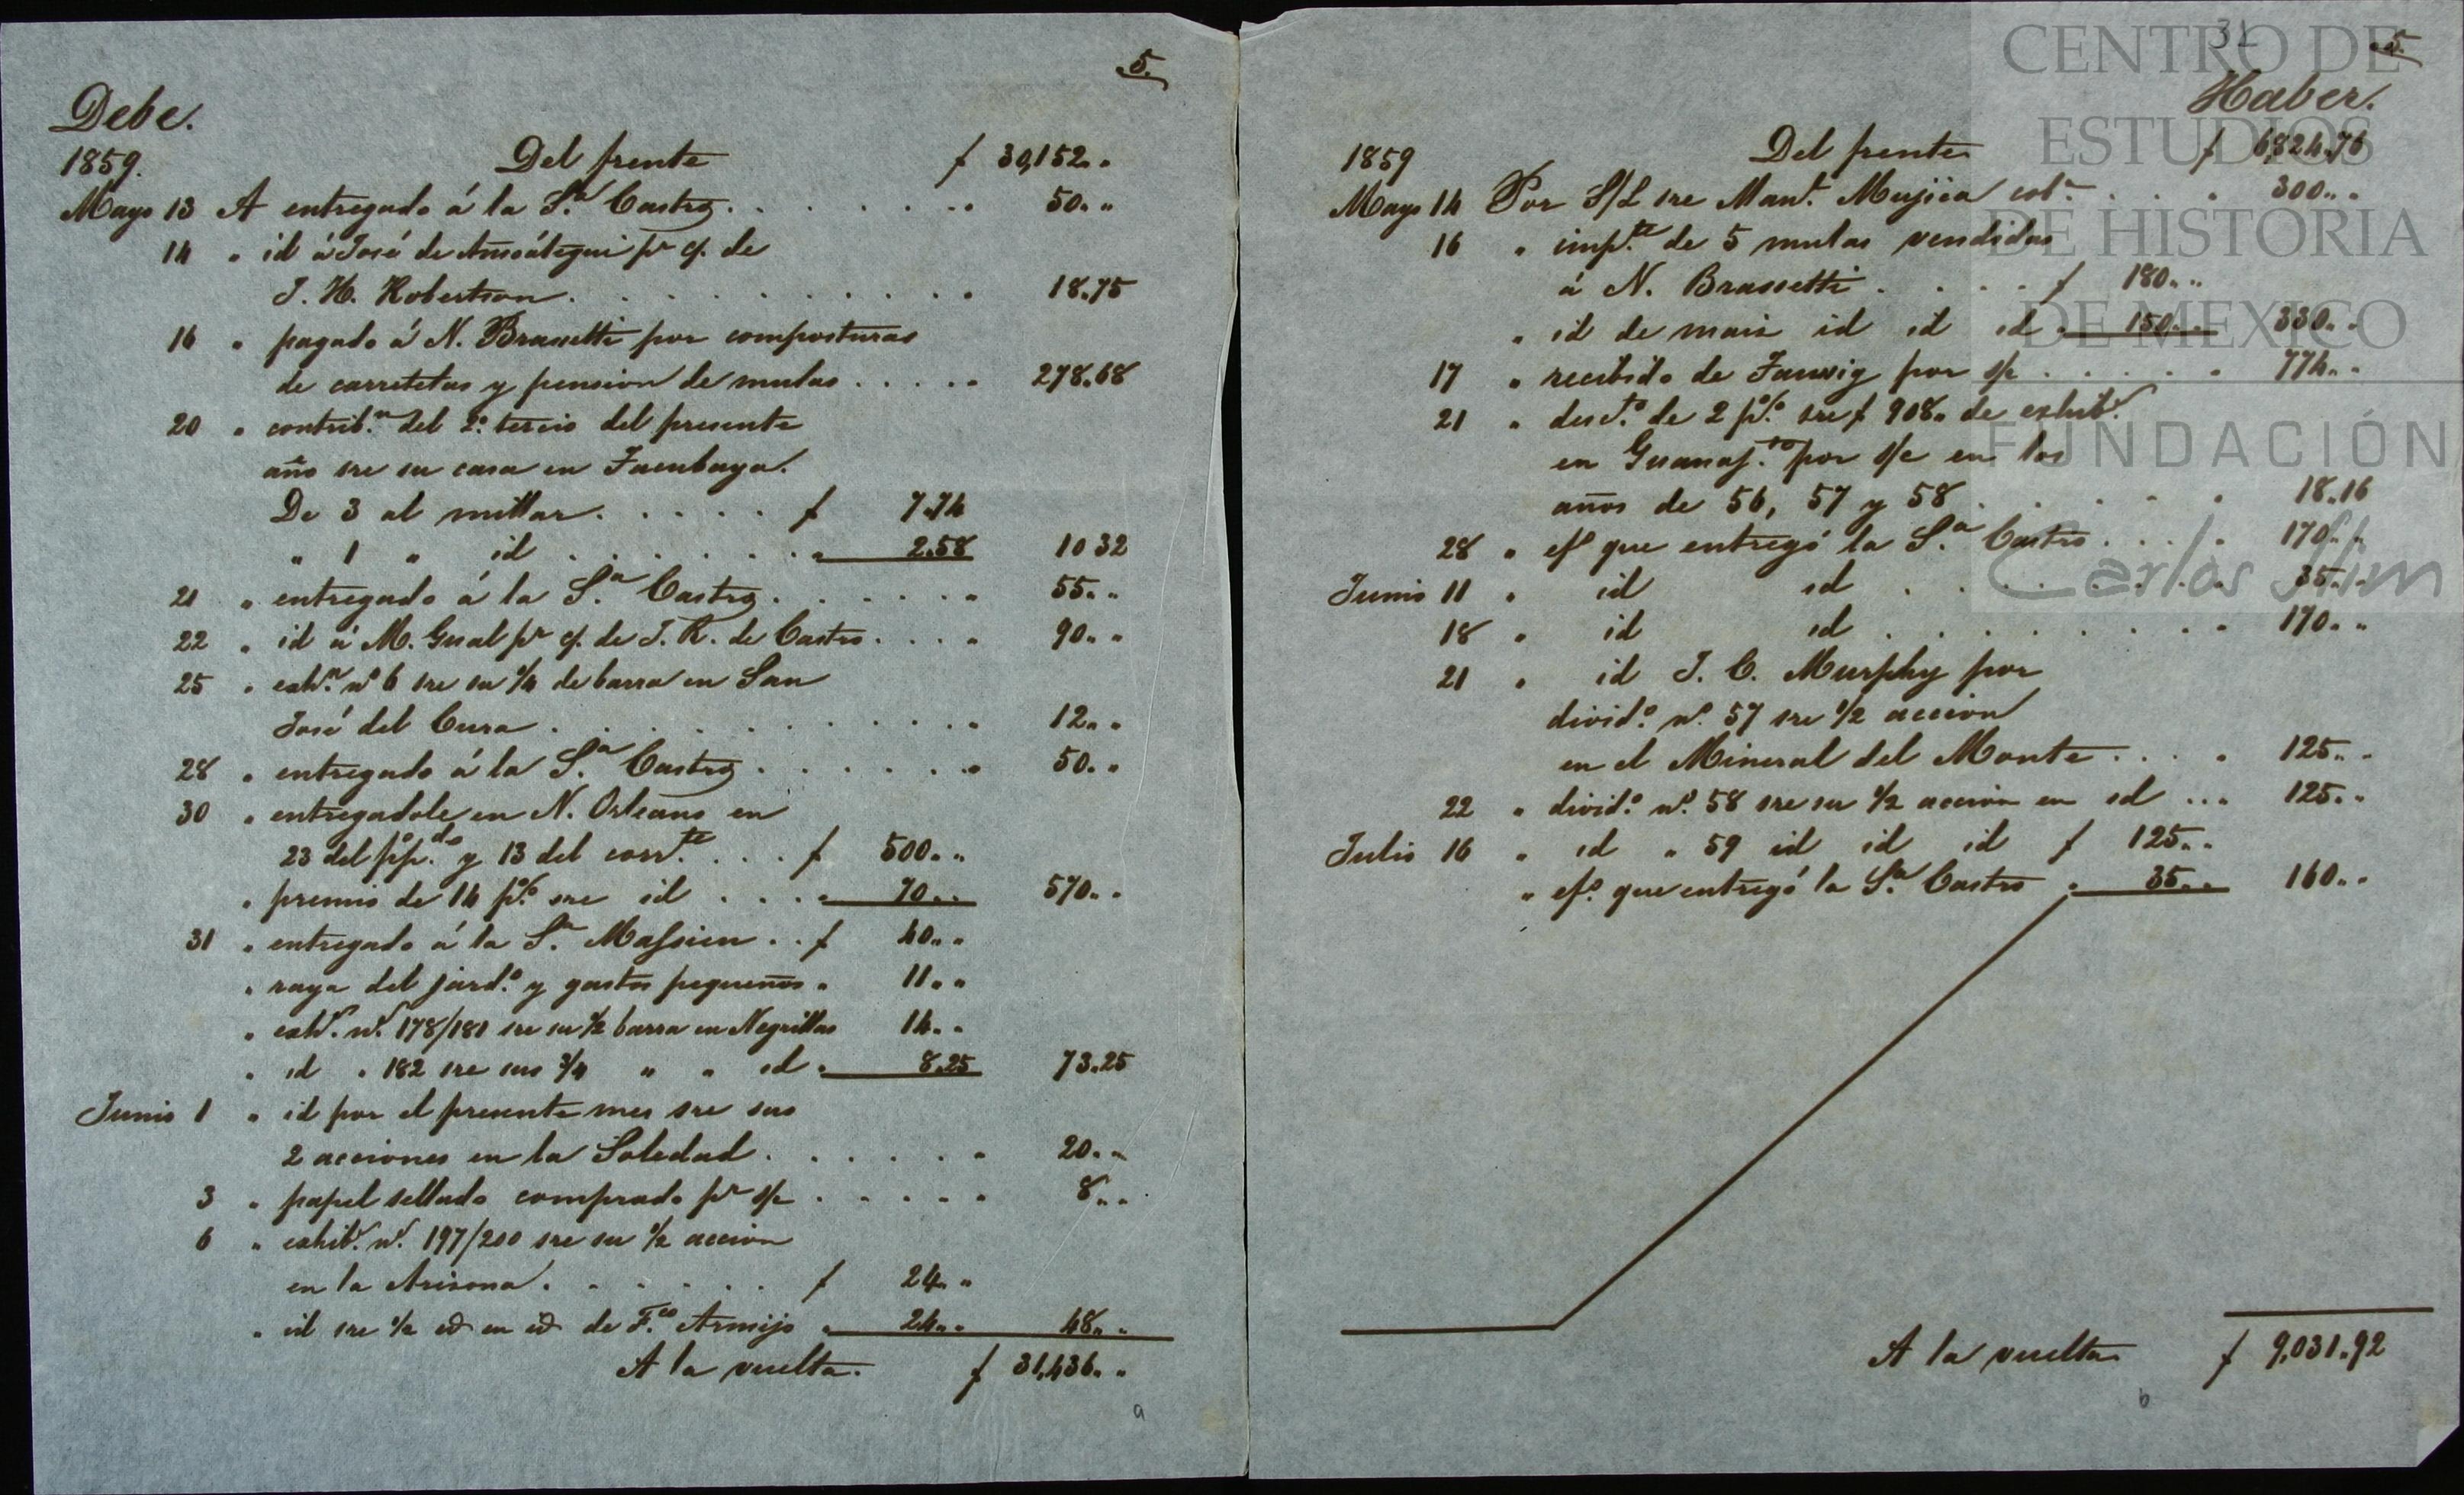 5.
Debe.
1859. Del frente $ 30,152. "
Mayo 13 A entregado á la S.ª Castro . . . . . . . " 50. "
14 " id á José de Ansoátegui pr q. de
J. H. Robertson . . . . . . . . . . " 18.75
16 " pagado á N. Brassetti por composturas
de carretelas y pension de mulas . . . . . 278.68
20 " contrib.n del 2.º tercio del presente
año sre su casa en Tacubaya.
De 3 al millar . . . . . $ 7.74
" 1 " id . . . . . . . " 2.58 10 32
21 " entregado á la S.ª Castro . . . . . . " 55. "
22 " id á M. Gual pr q. de J. R. de Castro . . . . 90. "
25 " exh.n nº 6 sre su 1/4 de barra en San
José del Cura . . . . . . . . . . " 12. "
28 " entregado á la S.ª Castro . . . . . . " 50. "
30 " entregadole en N. Orleans en
23 del pp.do y 13 del corr.te . . . $ 500. "
" premio de 14 p% sre id . . . " 70. " 570. "
31 " entregado á la S.ª Massieu . . $ 40. "
" raya del jard.º y gastos pequeños " 11. "
" exh.n nº 178/181 sre su 1/2 barra en Negrillas 14. "
" id " 182 sre sus 3/4 " " id " 8.25 73.25
Junio 1 " id por el presente mes sre sus
2 acciones en la Soledad . . . . . . " 20. "
3 " papel sellado comprado pr s/c . . . . . " 8. "
6 " exhib.n nº 197/200 sre su 1/2 accion
en la Arisona . . . . . . $ 24. "
" id sre 1/2 id en id de F.co Armijo " 24. " 48. "
A la vuelta. $ 31,436. "
a
31
5.
Haber.
1859 Del frente $ 6,824.76
Mayo 14 Por S/L sre Man.l Mujica cob.n . . . . " 300. "
16 " imp.te de 5 mulas vendidas
á N. Brassetti . . . . $ 180. "
" id de mais id id id " 150. " 330. "
17 " recibido de Fauwig por s/c . . . . . " 774. "
21 " desc.to de 2 p% sre $ 908 " de exhib.n
en Guanaj.to por s/c en los
años de 56, 57 y 58 . . . . . . " 18.16
28 " ef.º que entregó la S.ª Castro . . . . " 170. "
Junio 11 " id id . . . . . . . . " 35. "
18 " id id . . . . . . . . " 170. "
21 " id J. C. Murphy por
divid.º nº 57 sre 1/2 accion
en el Mineral del Monte . . . " 125. "
22 " divid.º nº 58 sre su 1/2 accion en id . . . 125. "
Julio 16 " id " 59 id id id $ 125. "
" ef.º que entregó la S.ª Castro " 35. " 160. "
A la vuelta $ 9,031.92
b
CENTRO DE
ESTUDIOS
DE HISTORIA
DE MEXICO
FUNDACIÓN
Carlos Slim